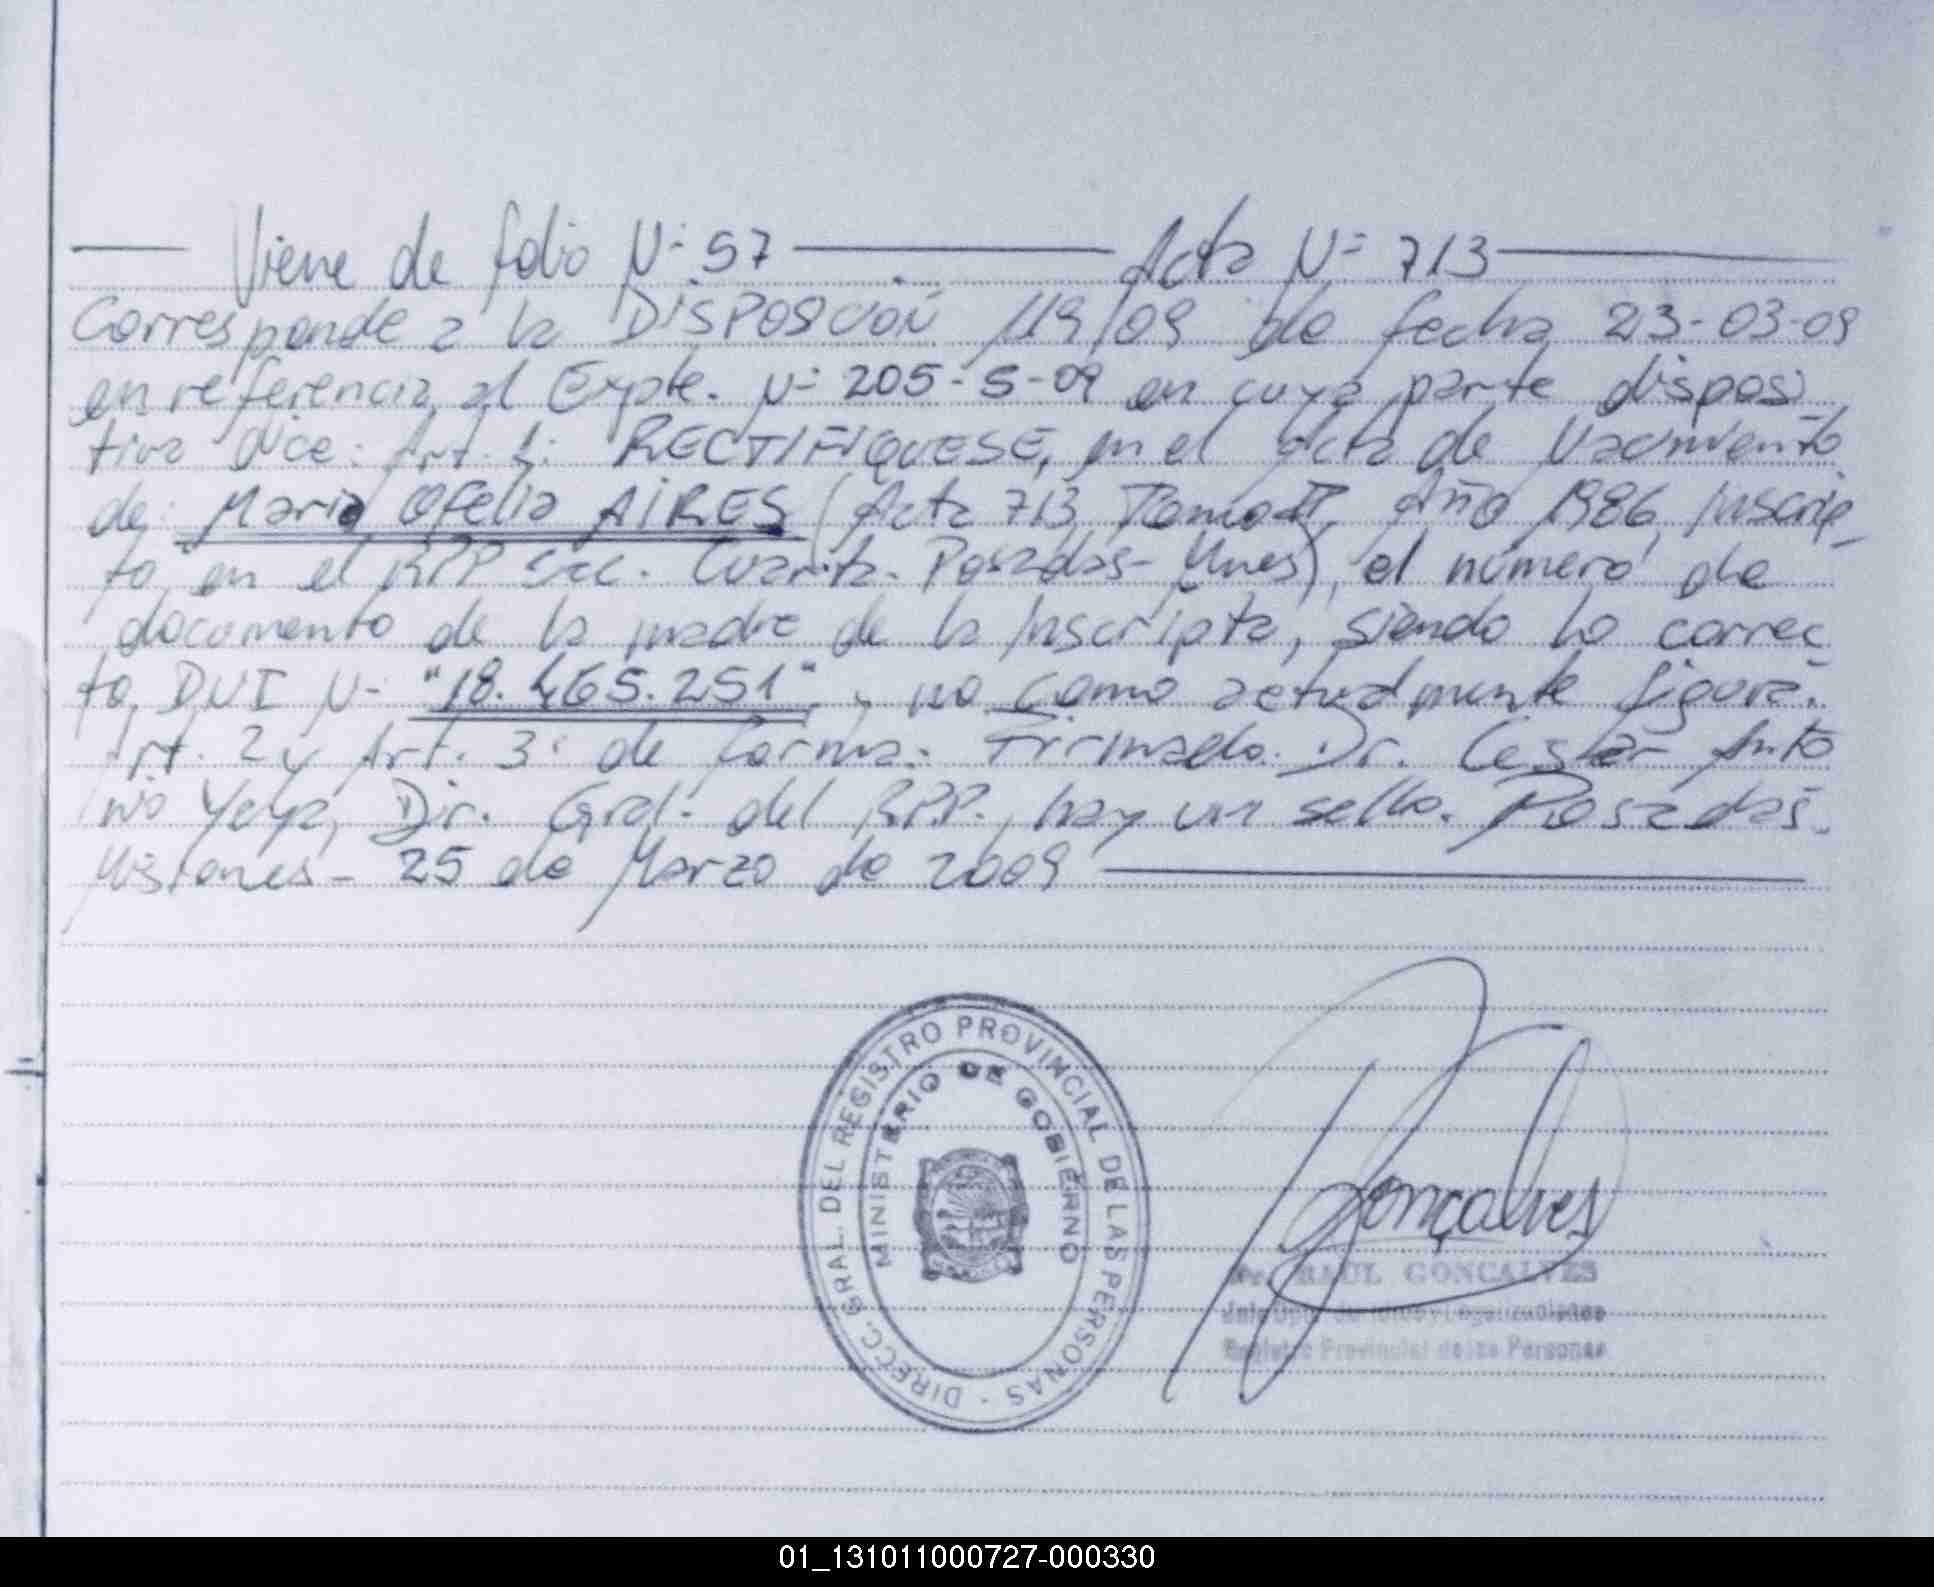 Viene de folio Nº 57 Acta Nº 713
Corresponde a la DISPOSCIÓN 119/09 de fecha 23-03-09
en referencia al Expte. Nº 205-S-09 en cuya parte disposi
tiva dice: Art. 1: RECTIFIQUESE, en el acta de Nacimiento
de: Maria Ofelia AIRES (Acta 713, Tomo II, Año 1986, Inscrip-
ta en el RPP Sec. Cuarta. Posadas- Mnes), el número de
documento de la madre de la Inscripta, siendo lo correc
to, DNI Nº "18.465.251", y no como actualmente figura.
Art. 2 y Art. 3: de forma. Firmado. Dr. Cesar Anto
nio Yeya, Dir. Gral. del RPP., hay un sello. Posadas.
Misiones- 25 de Marzo de 2009
DIRECC. GRAL. DEL REGISTRO PROVINCIAL DE LAS PERSONAS -
MINISTERIO DE GOBIERNO
Gonçalves
RAUL GONCALVES
Registro Provincial de las Personas
01_131011000727-000330